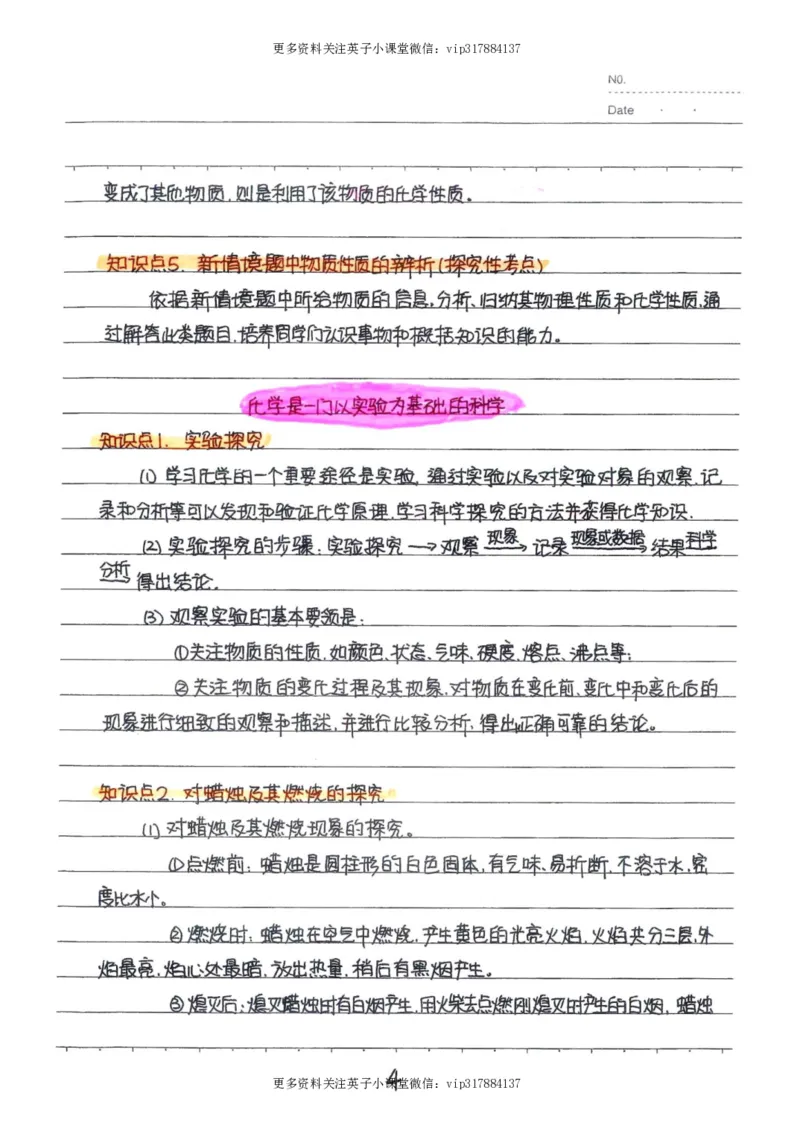 更多资料关注英子小课堂微信：vip317884137
NO.
Date
变成了其他物质，则是利用了该物质的化学性质。
知识点5. 新情境题中物质性质的辨析（探究性考点）
依据新情境题中所给物质的信息，分析、归纳其物理性质和化学性质，通
过解答此类题目，培养同学们认识事物和概括知识的能力。
化学是一门以实验为基础的科学
知识点1. 实验探究
(1) 学习化学的一个重要途径是实验，通过实验以及对实验对象的观察、记
录和分析等可以发现和验证化学原理，学习科学探究的方法并获得化学知识.
(2) 实验探究的步骤：实验探究 → 观察 现象→ 记录 现象或数据→ 结果 科学
分析→ 得出结论.
(3) 观察实验的基本要领是：
①关注物质的性质，如颜色、状态、气味、硬度、熔点、沸点等；
②关注物质的变化过程及其现象，对物质在变化前、变化中和变化后的
现象进行细致的观察和描述，并进行比较分析，得出正确可靠的结论。
知识点2. 对蜡烛及其燃烧的探究
(1) 对蜡烛及其燃烧现象的探究。
①点燃前：蜡烛是圆柱形的白色固体，有气味、易折断，不溶于水，密
度比水小。
②燃烧时：蜡烛在空气中燃烧，产生黄色的光亮火焰，火焰共分三层，外
焰最亮，焰心处最暗，放出热量，稍后有黑烟产生。
③熄灭后：熄灭蜡烛时有白烟产生，用火柴去点燃刚熄灭时产生的白烟，蜡烛
4
更多资料关注英子小课堂微信：vip317884137